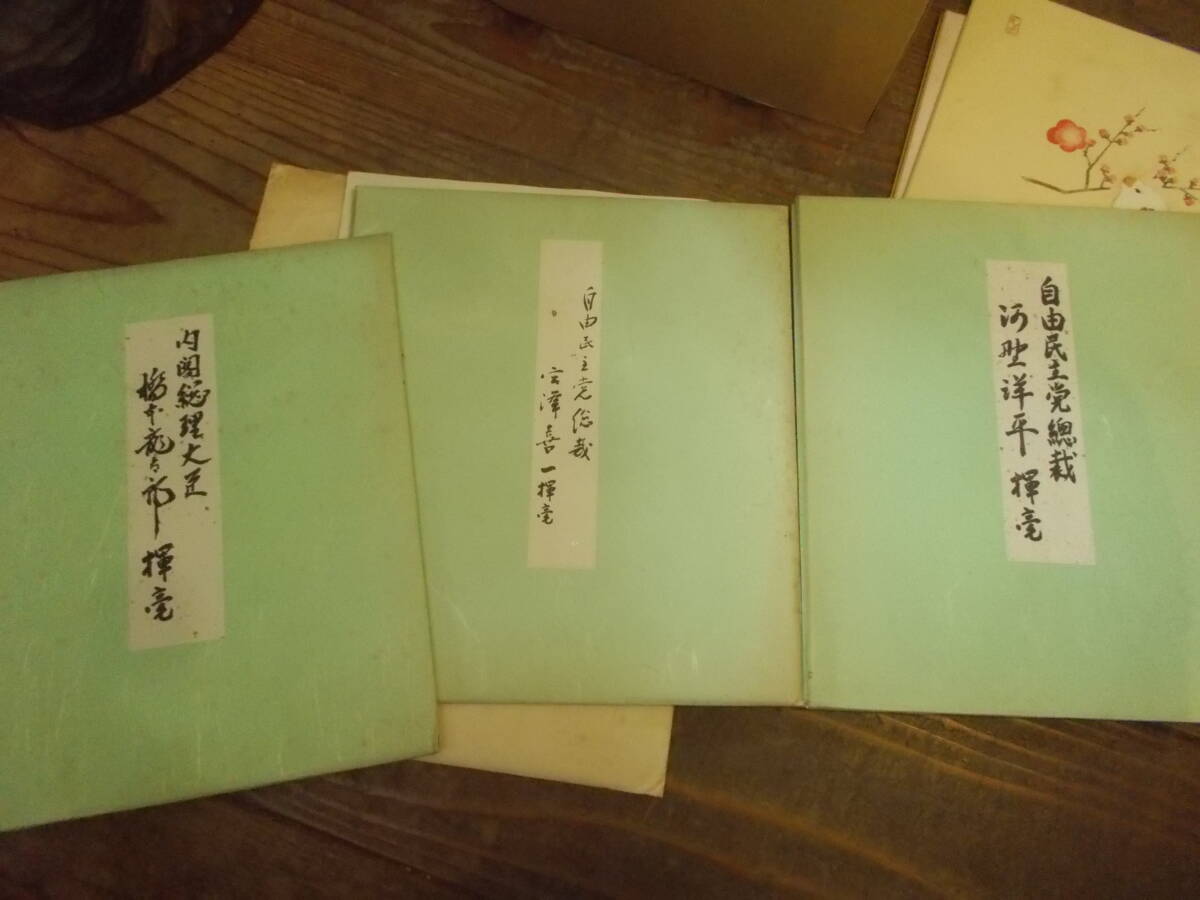 内閣総理大臣
橋本龍太郎 揮毫
自由民主党総裁
宮澤喜一揮毫
自由民主党總裁
河野洋平 揮毫